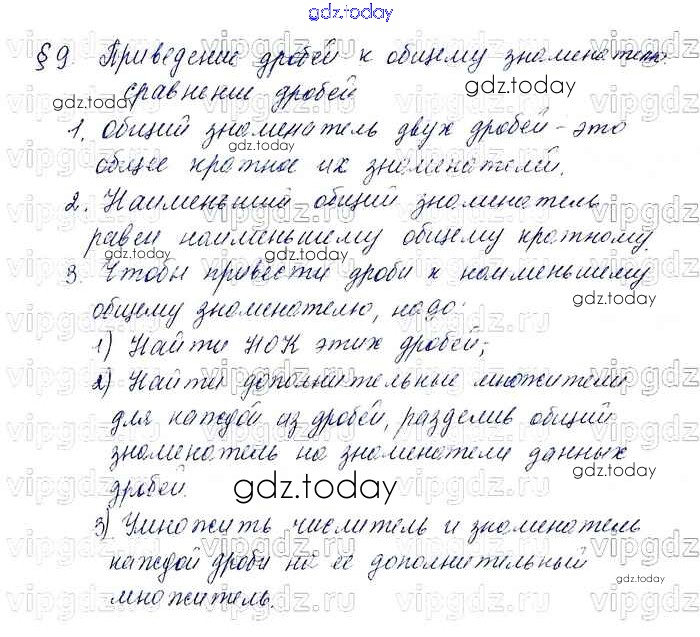 gdz.today
§ 9. Приведение дробей к общему знаменателю.
сравнение дробей
1. Общий знаменатель двух дробей – это
общее кратное их знаменателей.
2. Наименьший общий знаменатель
равен наименьшему общему кратному.
3. Чтобы привести дроби к наименьшему
общему знаменателю, надо:
1) Найти НОК этих дробей;
2) Найти дополнительные множители
для каждой из дробей, разделив общий
знаменатель на знаменатели данных
дробей.
gdz.today
3) Умножить числитель и знаменатель
каждой дроби на её дополнительный
множитель.